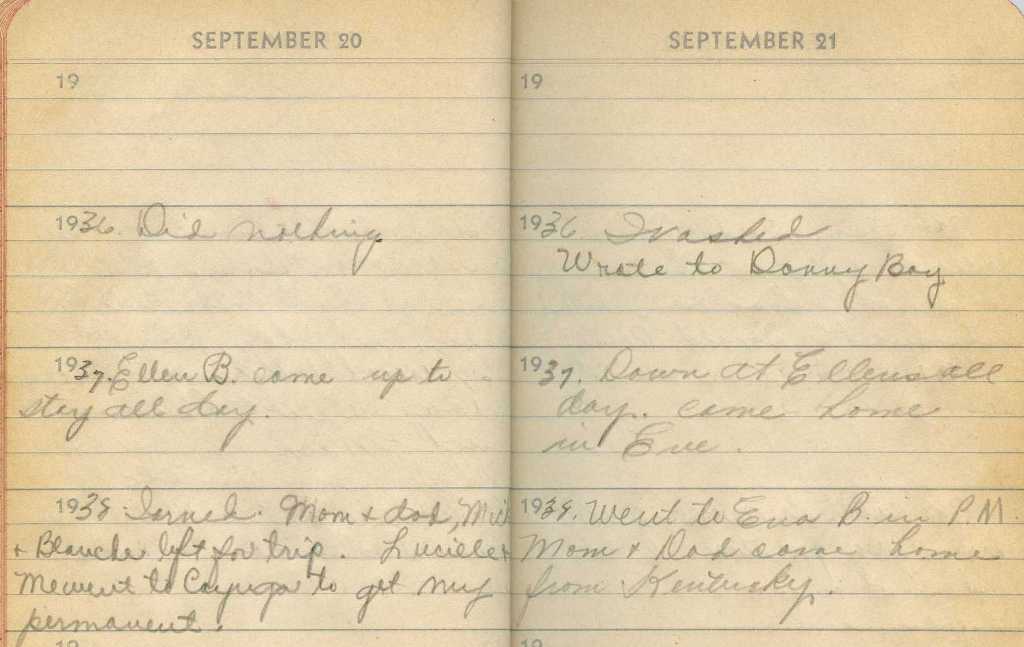 SEPTEMBER 20
19
1936. Did nothing
1937. Ellen B. came up to
stay all day.
1938. Ironed. Mom & dad,
& Blanche left for trip. Lucille &
Me went to Cayuga to get my
permanent.
19
SEPTEMBER 21
19
1936 I washed
Wrote to Donny Boy
1937. Down at Ellens all
day. came home
in Eve.
1938. Went to Eva B. in P.M.
Mom & Dad came home
from Kentucky.
19